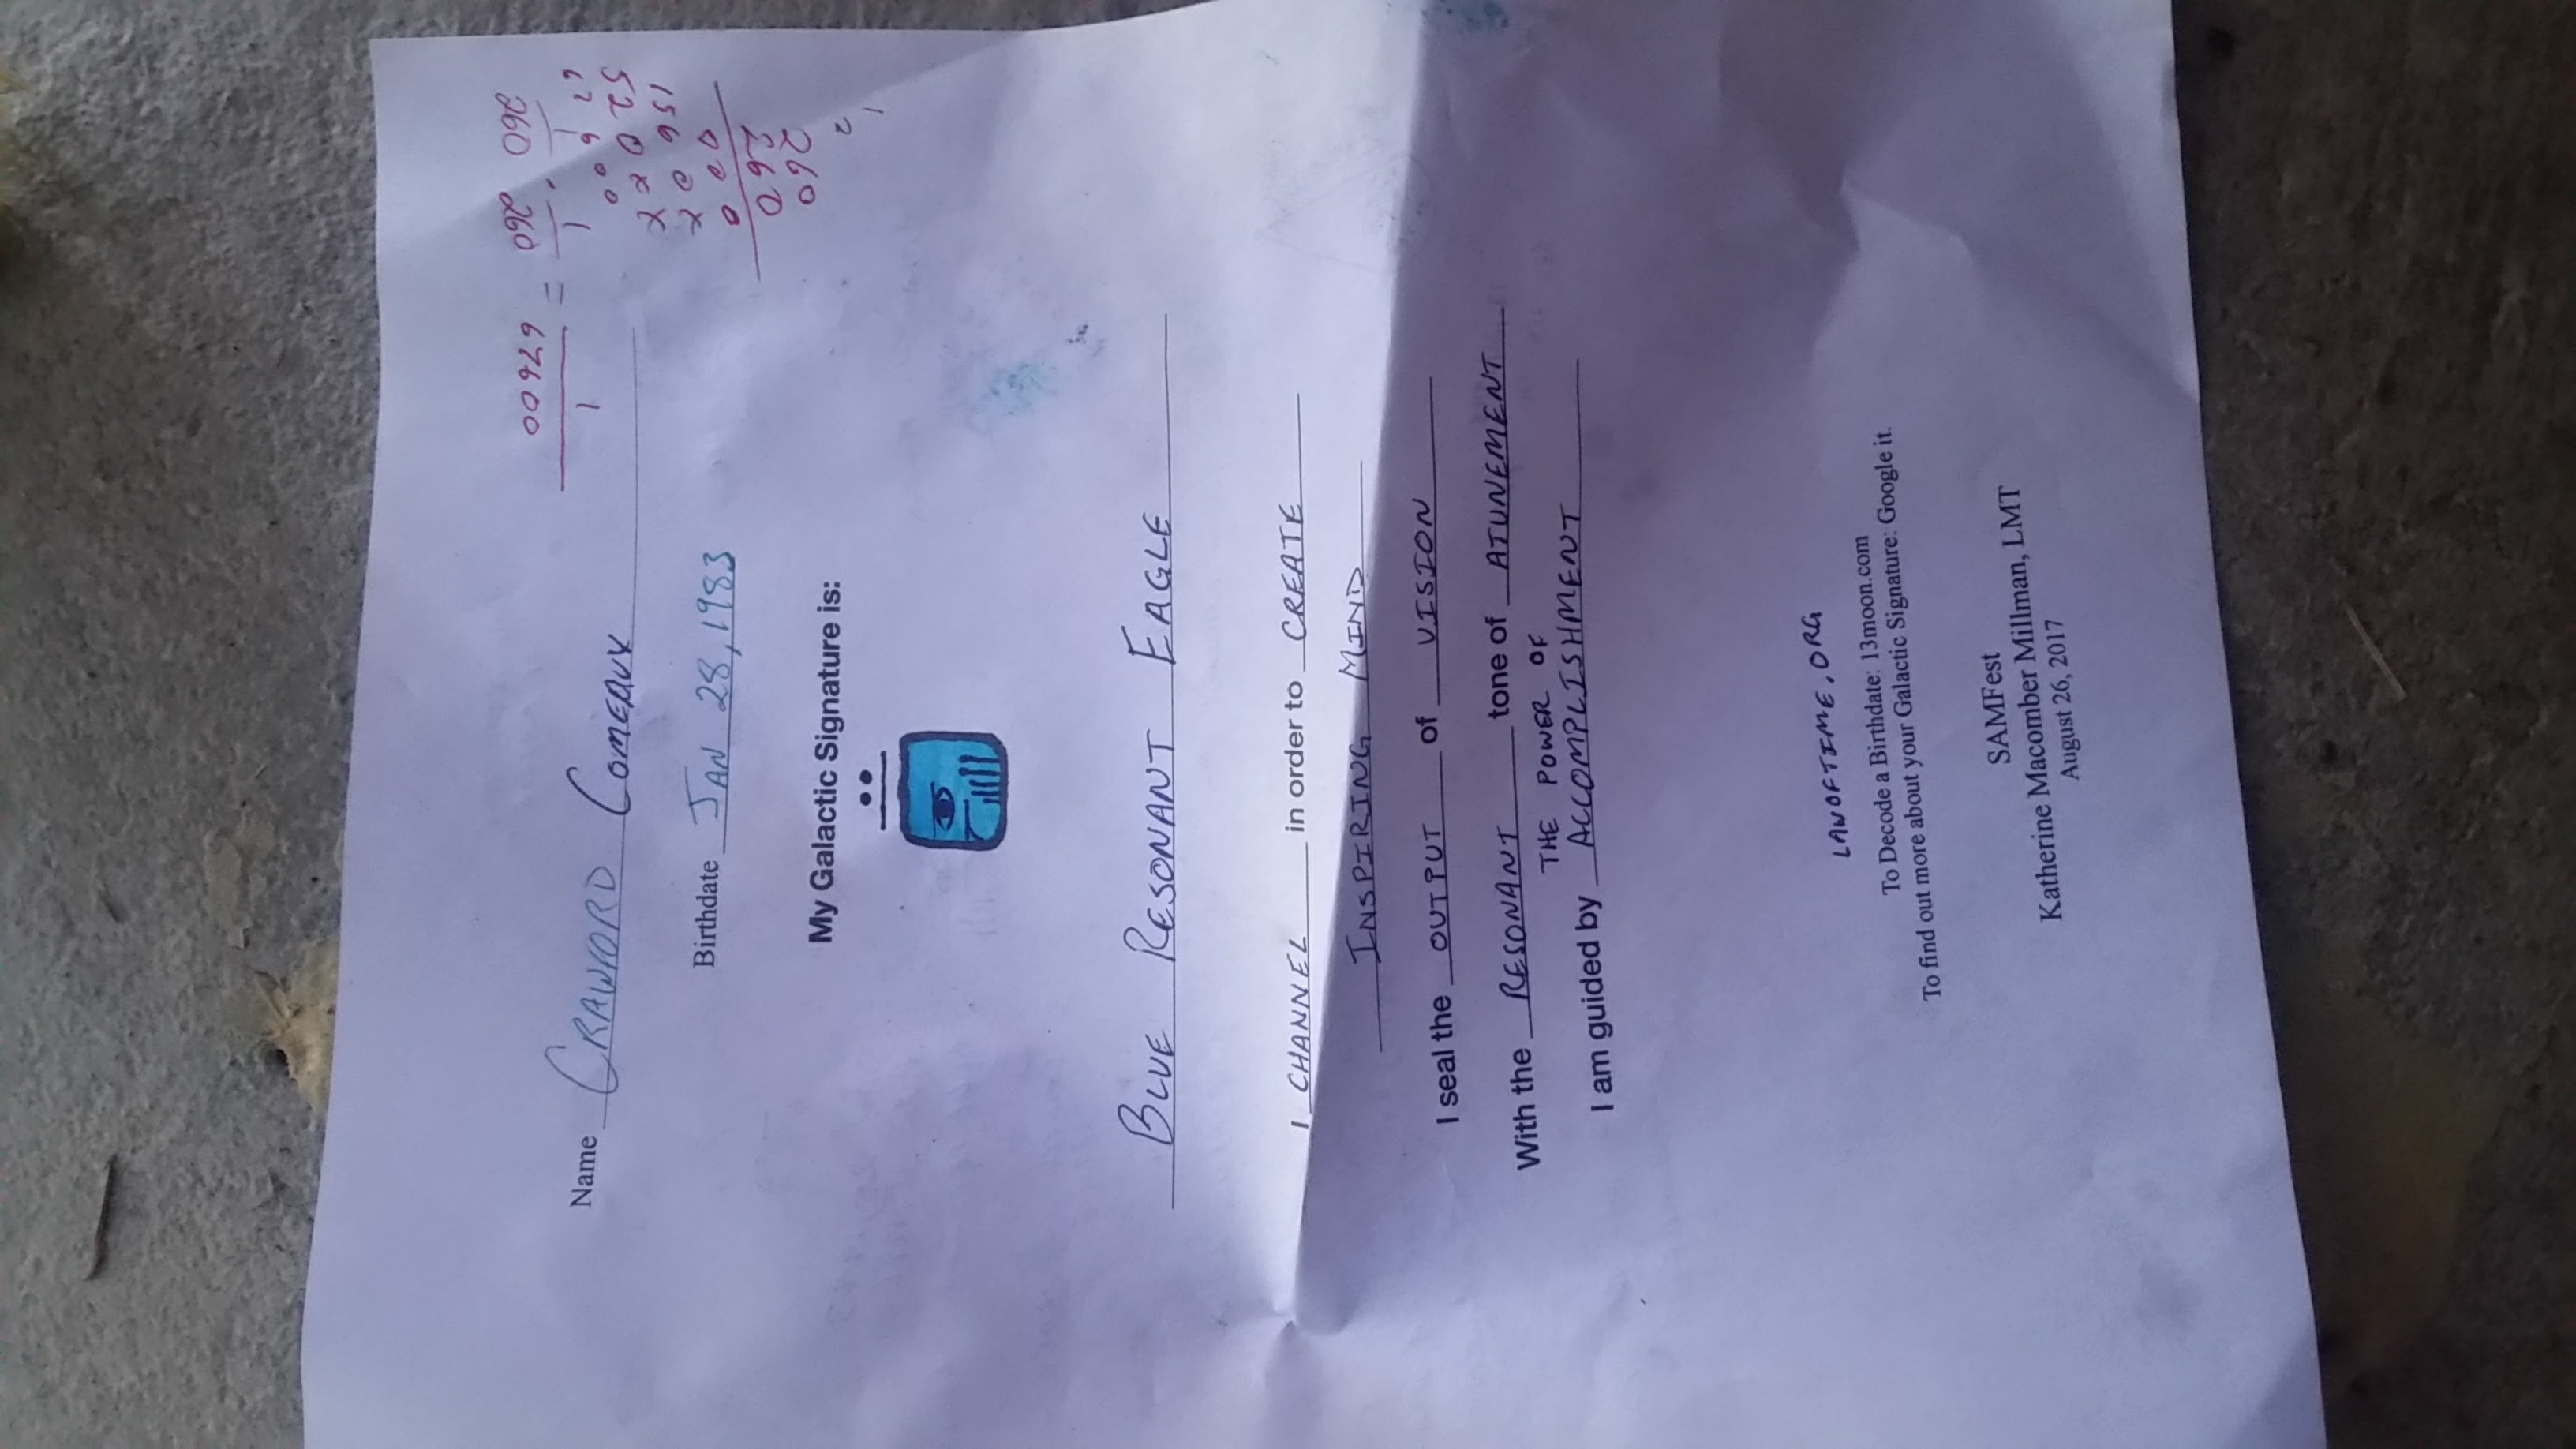 Name Crawford Comeaux
Birthdate Jan 28, 1983
My Galactic Signature is:
Blue Resonant Eagle
I CHANNEL in order to CREATE
INSPIRING MIND
I seal the OUTPUT of VISION
With the RESONANT tone of ATUNEMENT
THE POWER OF
I am guided by ACCOMPLISHMENT
LANOFTIME.ORG
To Decode a Birthdate: 13moon.com
To find out more about your Galactic Signature: Google it.
SAMFest
Katherine Macomber Millman, LMT
August 26, 2017
67600
1
=
260
1
.
260
1
260
260
000
156
520
67600